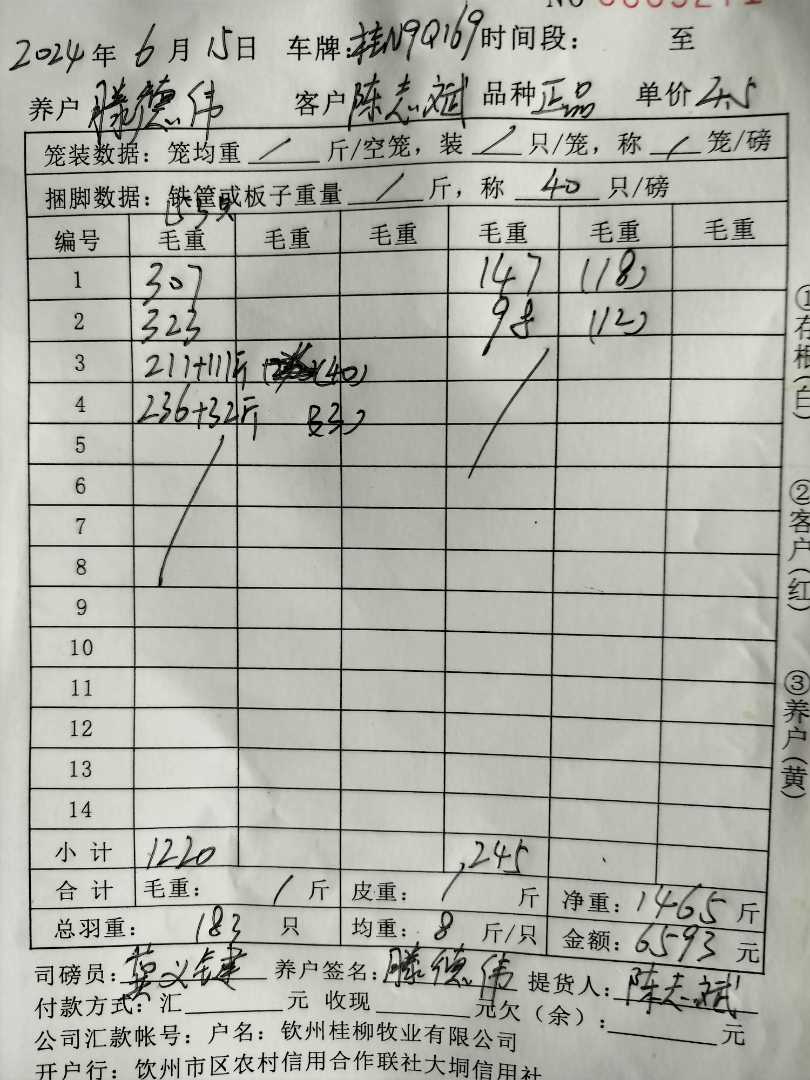 2024年6月15日 车牌:桂N9Q169 时间段: 至
养户 滕德伟 客户 陈志斌 品种 正品 单价 4.5
笼装数据: 笼均重 / 斤/空笼, 装 / 只/笼, 称 / 笼/磅
捆脚数据: 铁筐或板子重量 / 斤, 称 40 只/磅
编号 毛重 毛重 毛重 毛重 毛重 毛重
1 307 147 (18)
2 323 98 (12)
3 211+111斤 (40)
4 236+32斤
5
6
7
8
9
10
11
12
13
14
小计 1220 245
合计 毛重: / 斤 皮重: / 斤 净重: 1465 斤
总羽重: 183 只 均重: 8 斤/只 金额: 6593 元
司磅员: 莫义健 养户签名: 滕德伟 提货人: 陈志斌
付款方式: 汇 元 收现 元欠(余): 元
公司汇款帐号: 户名: 钦州桂柳牧业有限公司
开户行: 钦州市区农村信用合作联社大垌信用社
①存根(白) ②客户(红) ③养户(黄)